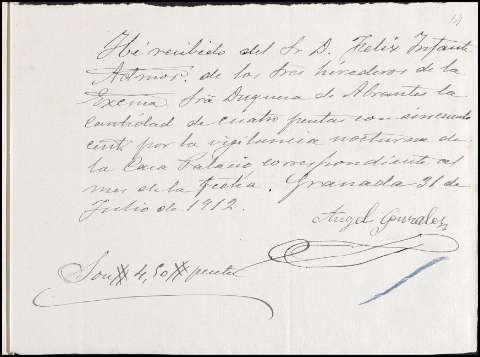 14
Hé recibido del Sr D. Felix Infante
Admor. de los tres hirederos de la
Excma Srã Duquesa de Abrantes la
cantidad de cuatro pesetas con cincuenta
cents por la vigilancia nocturna de
la Casa Palacio correspondiente al
mes de la fecha. Granada 31 de
Julio de 1912.
Angel Gonzalez
Son # 4,50 # pesetas